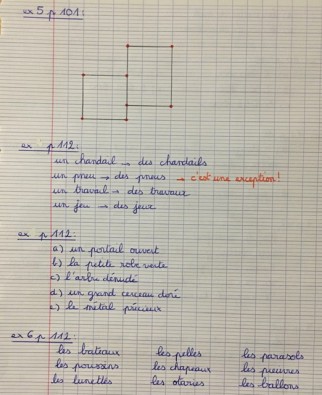 ex 5 p 101:
ex p 112:
un chandail → des chandails
un pneu → des pneus → c'est une exception!
un travail → des travaux
un jeu → des jeux
ex p 112:
a) un portail ouvert
b) la petite robe verte
c) l'arbre dénudé
d) un grand cerceau doré
e) le métal précieux
ex 6 p 112
les bateaux les pelles les parasols
les poussins les chapeaux les pieuvres
les lunettes les otaries les ballons